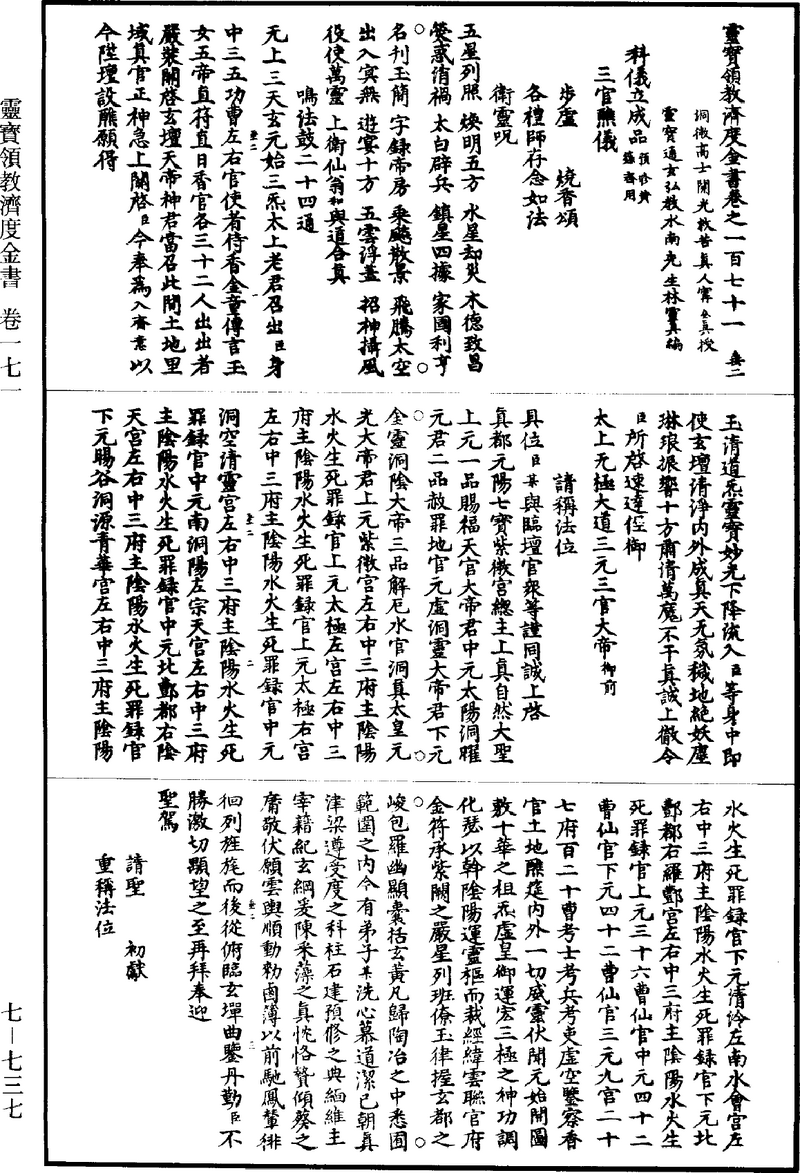 靈寶領教濟度金書卷之一百七十一 養二
洞微高士開光救苦真人甯全真授
靈寶通玄弘教水南先生林靈真編
科儀立成品 預修黃籙齋用
三官醮儀
步虛 燒香頌
各禮師存念如法
衛靈呪
五星列照 煥明五方 水星却災 木德致昌
熒惑消禍 太白辟兵 鎮星四據 家國利亨
名刊玉簡 字錄帝房 乘飈散景 飛騰太空
出入冥無 遊宴十方 五雲浮蓋 招神攝風
役使萬靈 上衛仙翁 和與道合真
鳴法鼓二十四通
无上三天玄元始三炁太上老君召出臣身
中三五功曹左右官使者侍香金童傳言玉
女五帝直符直日香官各三十二人出出者
嚴裝關啓玄壇天帝神君當召此間土地里
域真官正神急上關啓臣今奉為入齋意以
今陞壇設醮願得
玉清道炁靈寶妙光下降流入臣等身中即
使玄壇清淨內外成真天无氛穢地絕妖塵
琳琅振響十方肅清萬魔不干真誠上徹令
臣所啓速達徑御
太上无極大道三元三官大帝御前
請稱法位
具位臣某與臨壇官衆等謹同誠上啓
真都元陽七寶紫微宮總主上真自然大聖
上元一品賜福天官大帝君中元太陽洞曜
元君二品赦罪地官元虛洞靈大帝君下元
金靈洞陰大帝三品解厄水官洞真太皇元
光大帝君上元紫微宮左右中三府主陰陽
水火生死罪錄官上元太極左宮左右中三
府主陰陽水火生死罪錄官上元太極右宮
左右中三府主陰陽水火生死罪錄官中元
洞空清靈宮左右中三府主陰陽水火生死
罪錄官中元南洞陽左宗天宮左右中三府
主陰陽水火生死罪錄官中元北酆都右陰
天宮左右中三府主陰陽水火生死罪錄官
下元暘谷洞源青華宮左右中三府主陰陽
水火生死罪錄官下元清泠左南水會宮左
右中三府主陰陽水火生死罪錄官下元北
酆都右羅酆宮左右中三府主陰陽水火生
死罪錄官上元三十六曹仙官中元四十二
曹仙官下元四十二曹仙官三元九宮二十
七府百二十曹考士考兵考吏虛空鑒察香
官土地醮筵內外一切威靈伏聞元始開圖
敷十華之祖炁虛皇御運宏三極之神功調
化瑟以幹陰陽運靈樞而裁經緯雲聯官府
金符承紫闕之嚴星列班僚玉律握玄都之
峻包羅幽顯囊括玄黃凡歸陶冶之中悉囿
範圍之內今有弟子某洗心慕道潔已朝真
津梁遵受度之科柱石建預修之典緬維主
宰籍紀玄綱爰陳采藻之真恍恪贊傾葵之
庸敬伏願雲輿順動勑鹵簿以前馳鳳輦徘
徊列旌旄而後從俯臨玄墠曲鑒丹勤臣不
勝激切顒望之至再拜奉迎
聖駕
請聖 初獻
重稱法位
靈寶領教濟度金書 卷一七一
七—七三七